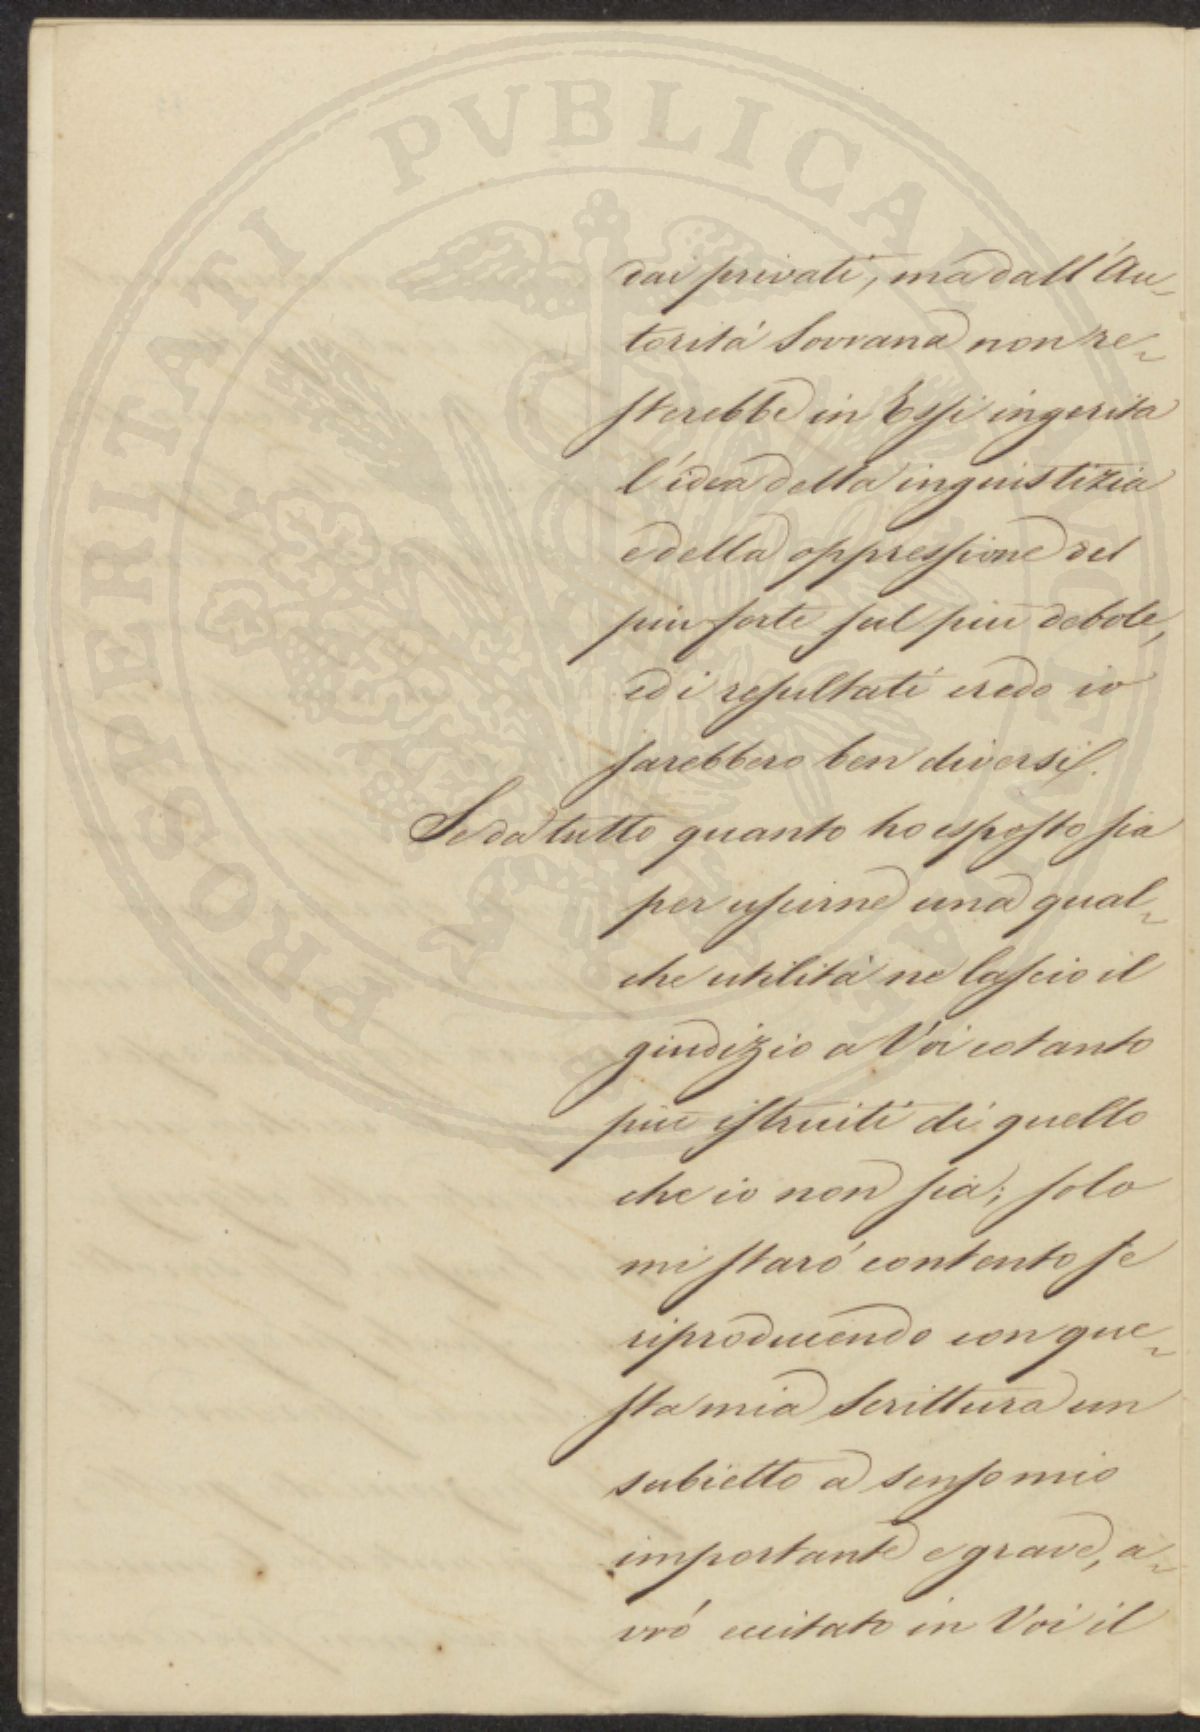 PROSPERITATI PVBLICAE AVGENDAE
dai privati, ma dall'Au-
torità Sovrana non re-
sterebbe in Essi ingerita
l'idea della inguistizia
e della oppressione del
piu forte sul piu debole,
ed i resultati credo io
sarebbero ben diversi.
Se da tutto quanto ho esposto sia
per uscirne una qual-
che utilità ne lascio il
giudizio a Voi cotanto
piu istruiti di quello
che io non sia; solo
mi starò contento se
riproducendo con que-
sta mia Scrittura un
subietto a senso mio
importante e grave, a-
vró eccitato in Voi il